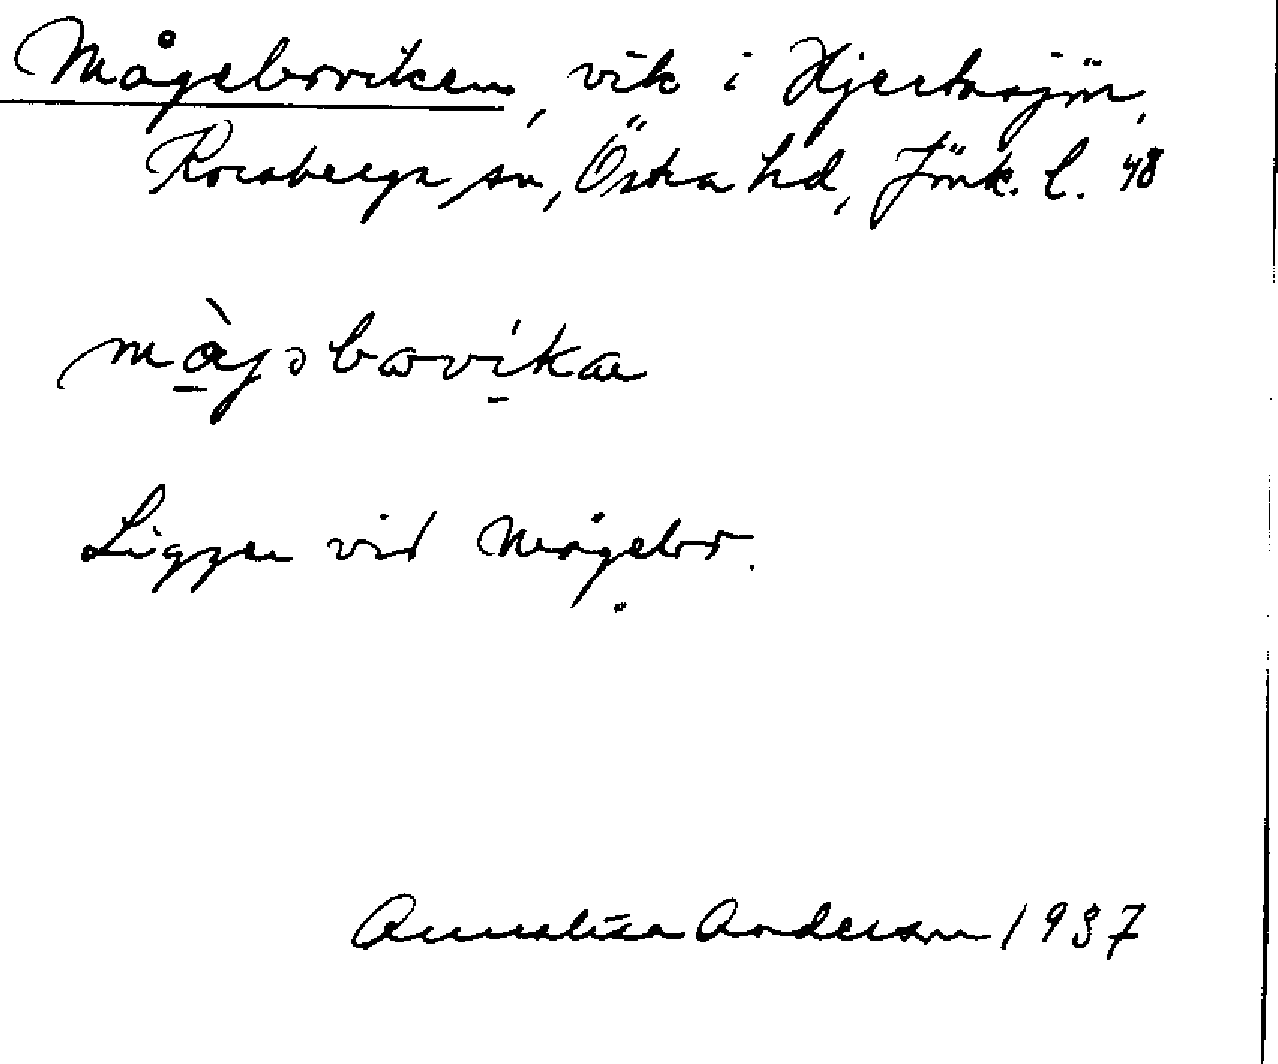 Mågeboviken, vik i Hjertasjön,
Korsberga sn, Östra hd, Jönk. l. 48
màgəbovíka
Ligger vid Mågebo.
Annalisa Anderson 1937